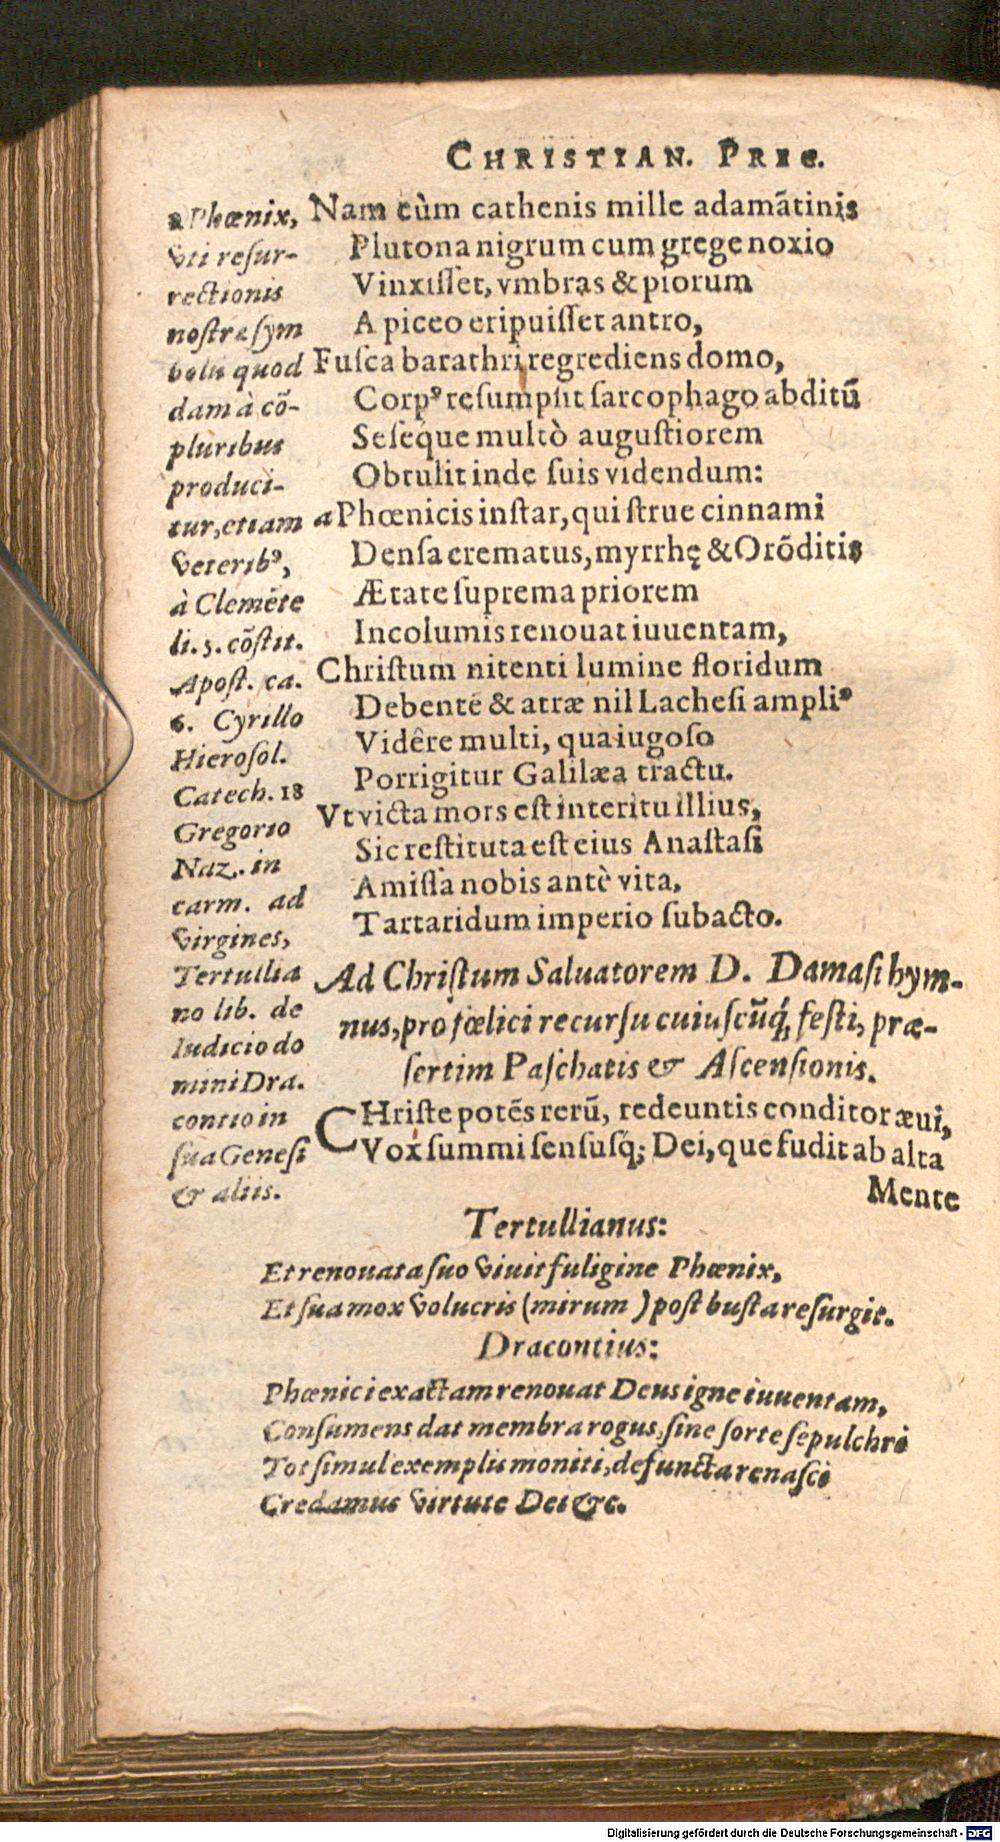 CHRISTIAN. PREC.
Nam cùm cathenis mille adamãtinis
Plutona nigrum cum grege noxio
Vinxisſet, vmbras & piorum
A piceo eripuiſſet antro,
Fuſca barathri regrediens domo,
Corpꝰ reſumpſit ſarcophago abditũ
Seſeque multò auguſtiorem
Obtulit inde ſuis videndum:
a Phœnicis inſtar, qui ſtrue cinnami
Denſa crematus, myrrhę & Orõditis
Ætate ſuprema priorem
Incolumis renouat iuuentam,
Chriſtum nitenti lumine floridum
Debente & atræ nil Lacheſi ampliꝰ
Vidêre multi, qua iugoſo
Porrigitur Galilæa tractu.
Vt victa mors eſt interitu illius,
Sic reſtituta eſt eius Anaſtaſi
Amiſſa nobis antè vita,
Tartaridum imperio ſubacto.
a Phœnix,
vti reſur-
rectionis
noſtræ ſym
bolũ quod
dam à cõ-
pluribus
produci-
tur, etiam
veteribꝰ,
à Clemẽte
li. 5. cõſtit.
Apoſt. ca.
6. Cyrillo
Hieroſol.
Catech. 18
Gregorio
Naz. in
carm. ad
virgines,
Tertullia
no lib. de
Iudicio do
mini Dra.
contio in
ſua Geneſi
& aliis.
Ad Chriſtum Saluatorem D. Damaſi hym-
nus, pro fœlici recurſu cuiuſcũq́, feſti, præ-
ſertim Paſchatis & Aſcenſionis.
CHriſte potẽs rerũ, redeuntis conditor æui,
Vox ſummi ſenſusq́; Dei, que fudit ab alta
Mente
Tertullianus:
Et renouata ſuo viuit fuligine Phœnix,
Et ſua mox volucris (mirum) poſt buſta reſurgit.
Dracontius:
Phœnici exactam renouat Deus igne iuuentam,
Conſumens dat membra rogus, ſine ſorte ſepulchri
Tot ſimul exemplis moniti, defuncta renaſci
Credamus virtute Dei &c.
Digitalisierung gefördert durch die Deutsche Forschungsgemeinschaft - DFG